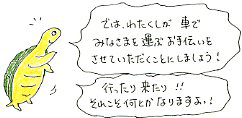 では、わたくしが 車で
みなさまを運ぶ お手伝いを
させていただくことにしましょう!
行ったり 来たり !!
それこそ何とかなりますよ、!